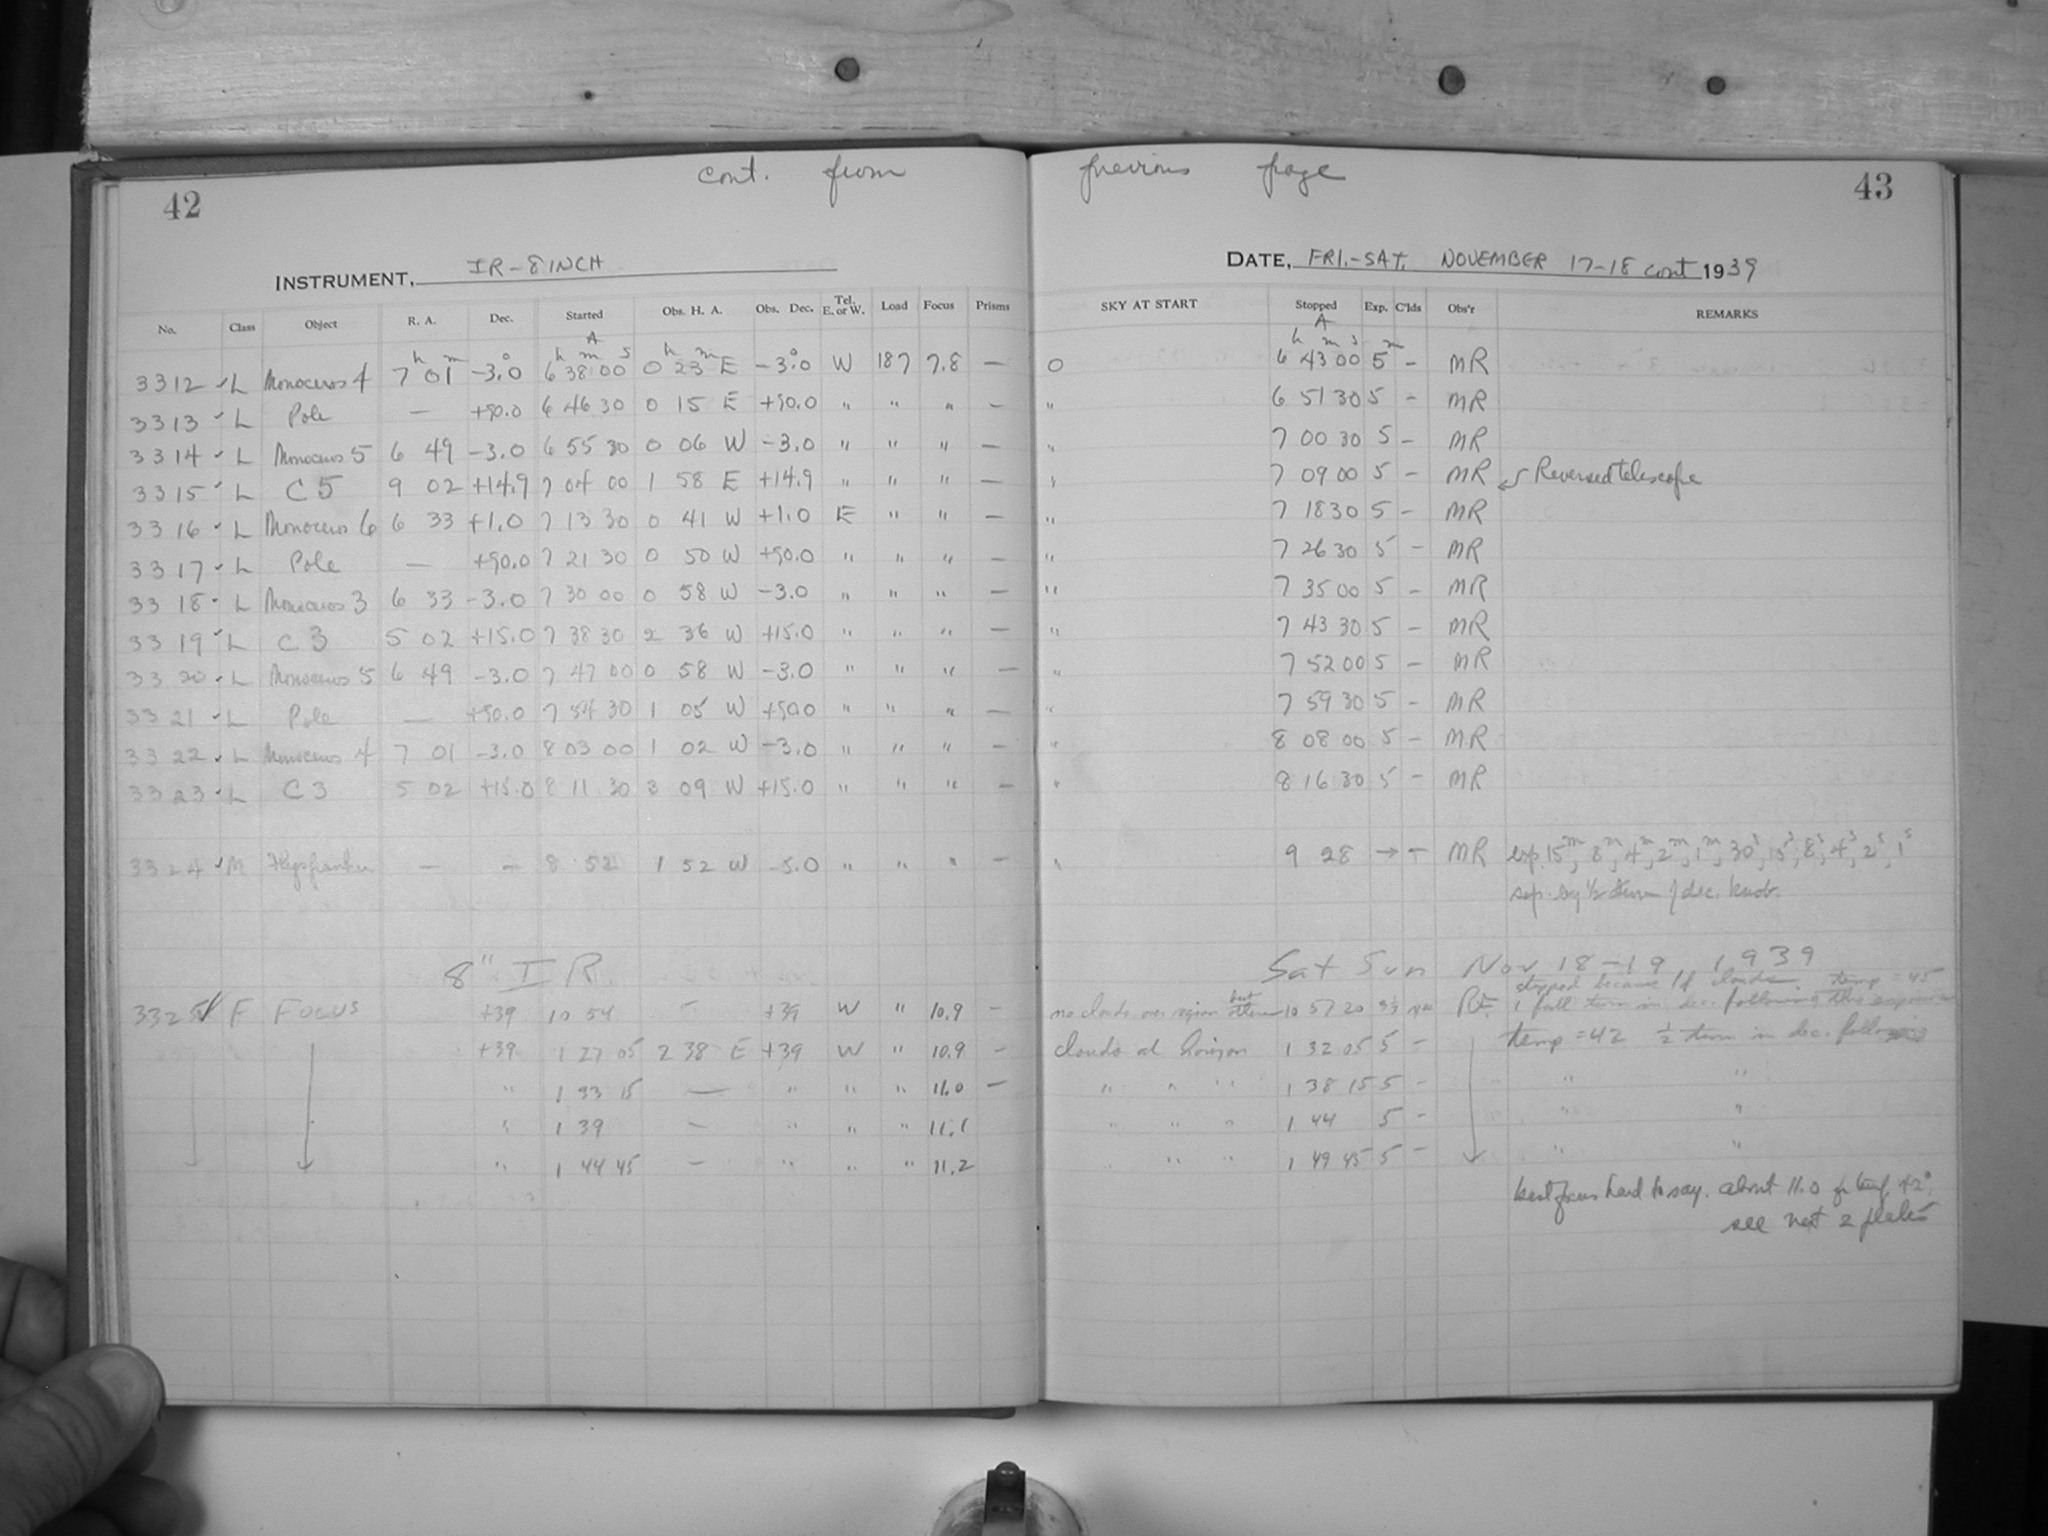 cont. from previous page
42
43
INSTRUMENT, IR-8 INCH
DATE, FRI.-SAT. NOVEMBER 17-18 cont 1939
No. Class Object R. A. Dec. Started Obs. H. A. Obs. Dec. Tel. E. or W. Load Focus Prisms SKY AT START Stopped Exp. C'lds Obs'r REMARKS
3312 ✓ L Monoceros 4 7h 01m -3.0° A 6h 38m 00s 0h 23m E -3.0° W 187 7.8 — 0 A 6h 43m 00s 5m - MR
3313 ✓ L Pole — +90.0 6 46 30 0 15 E +90.0 " " " — " 6 51 30 5 - MR
3314 ✓ L Monoceros 5 6 49 -3.0 6 55 30 0 06 W -3.0 " " " — " 7 00 30 5 - MR
3315 ✓ L C5 9 02 +14.9 7 04 00 1 58 E +14.9 " " " — " 7 09 00 5 - MR Reversed telescope
3316 ✓ L Monoceros 6 6 33 +1.0 7 13 30 0 41 W +1.0 E " " — " 7 18 30 5 - MR
3317 ✓ L Pole — +90.0 7 21 30 0 50 W +90.0 " " " — " 7 26 30 5 - MR
3318 ✓ L Monoceros 3 6 33 -3.0 7 30 00 0 58 W -3.0 " " " — " 7 35 00 5 - MR
3319 ✓ L C3 5 02 +15.0 7 38 30 2 36 W +15.0 " " " — " 7 43 30 5 - MR
3320 ✓ L Monoceros 5 6 49 -3.0 7 47 00 0 58 W -3.0 " " " — " 7 52 00 5 - MR
3321 ✓ L Pole — +90.0 7 54 30 1 05 W +90.0 " " " — " 7 59 30 5 - MR
3322 ✓ L Monoceros 4 7 01 -3.0 8 03 00 1 02 W -3.0 " " " — " 8 08 00 5 - MR
3323 ✓ L C3 5 02 +15.0 8 11 30 3 09 W +15.0 " " " — " 8 16 30 5 - MR
3324 ✓ M — — 8 52 1 52 W -5.0 " " " — " 9 28 → - MR exp. 15m, 8m, 4m, 2m, 1m, 30s, 15s, 8s, 4s, 2s, 1s
sep. by ½ turn of dec. knob.
8" IR
Sat Sun Nov 18-19 1939
stopped because of clouds. temp = 45
3325 ✓ F FOCUS +39 10 54 +39 W " 10.9 — no clouds over region but 10 57 20 1 full turn in dec. following this exposure
+39 1 27 05 2 38 E +39 W " 10.9 — clouds at horizon 1 32 05 5 - temp = 42 ½ turn in dec. following
" 1 33 15 — " " " 11.0 — " " " 1 38 15 5 - " "
" 1 39 — " " " 11.1 " " " 1 44 5 - " "
" 1 44 45 — " " " 11.2 " " " 1 49 45 5 - " "
best focus hard to say. about 11.0 for temp. 42°.
see next 2 plates